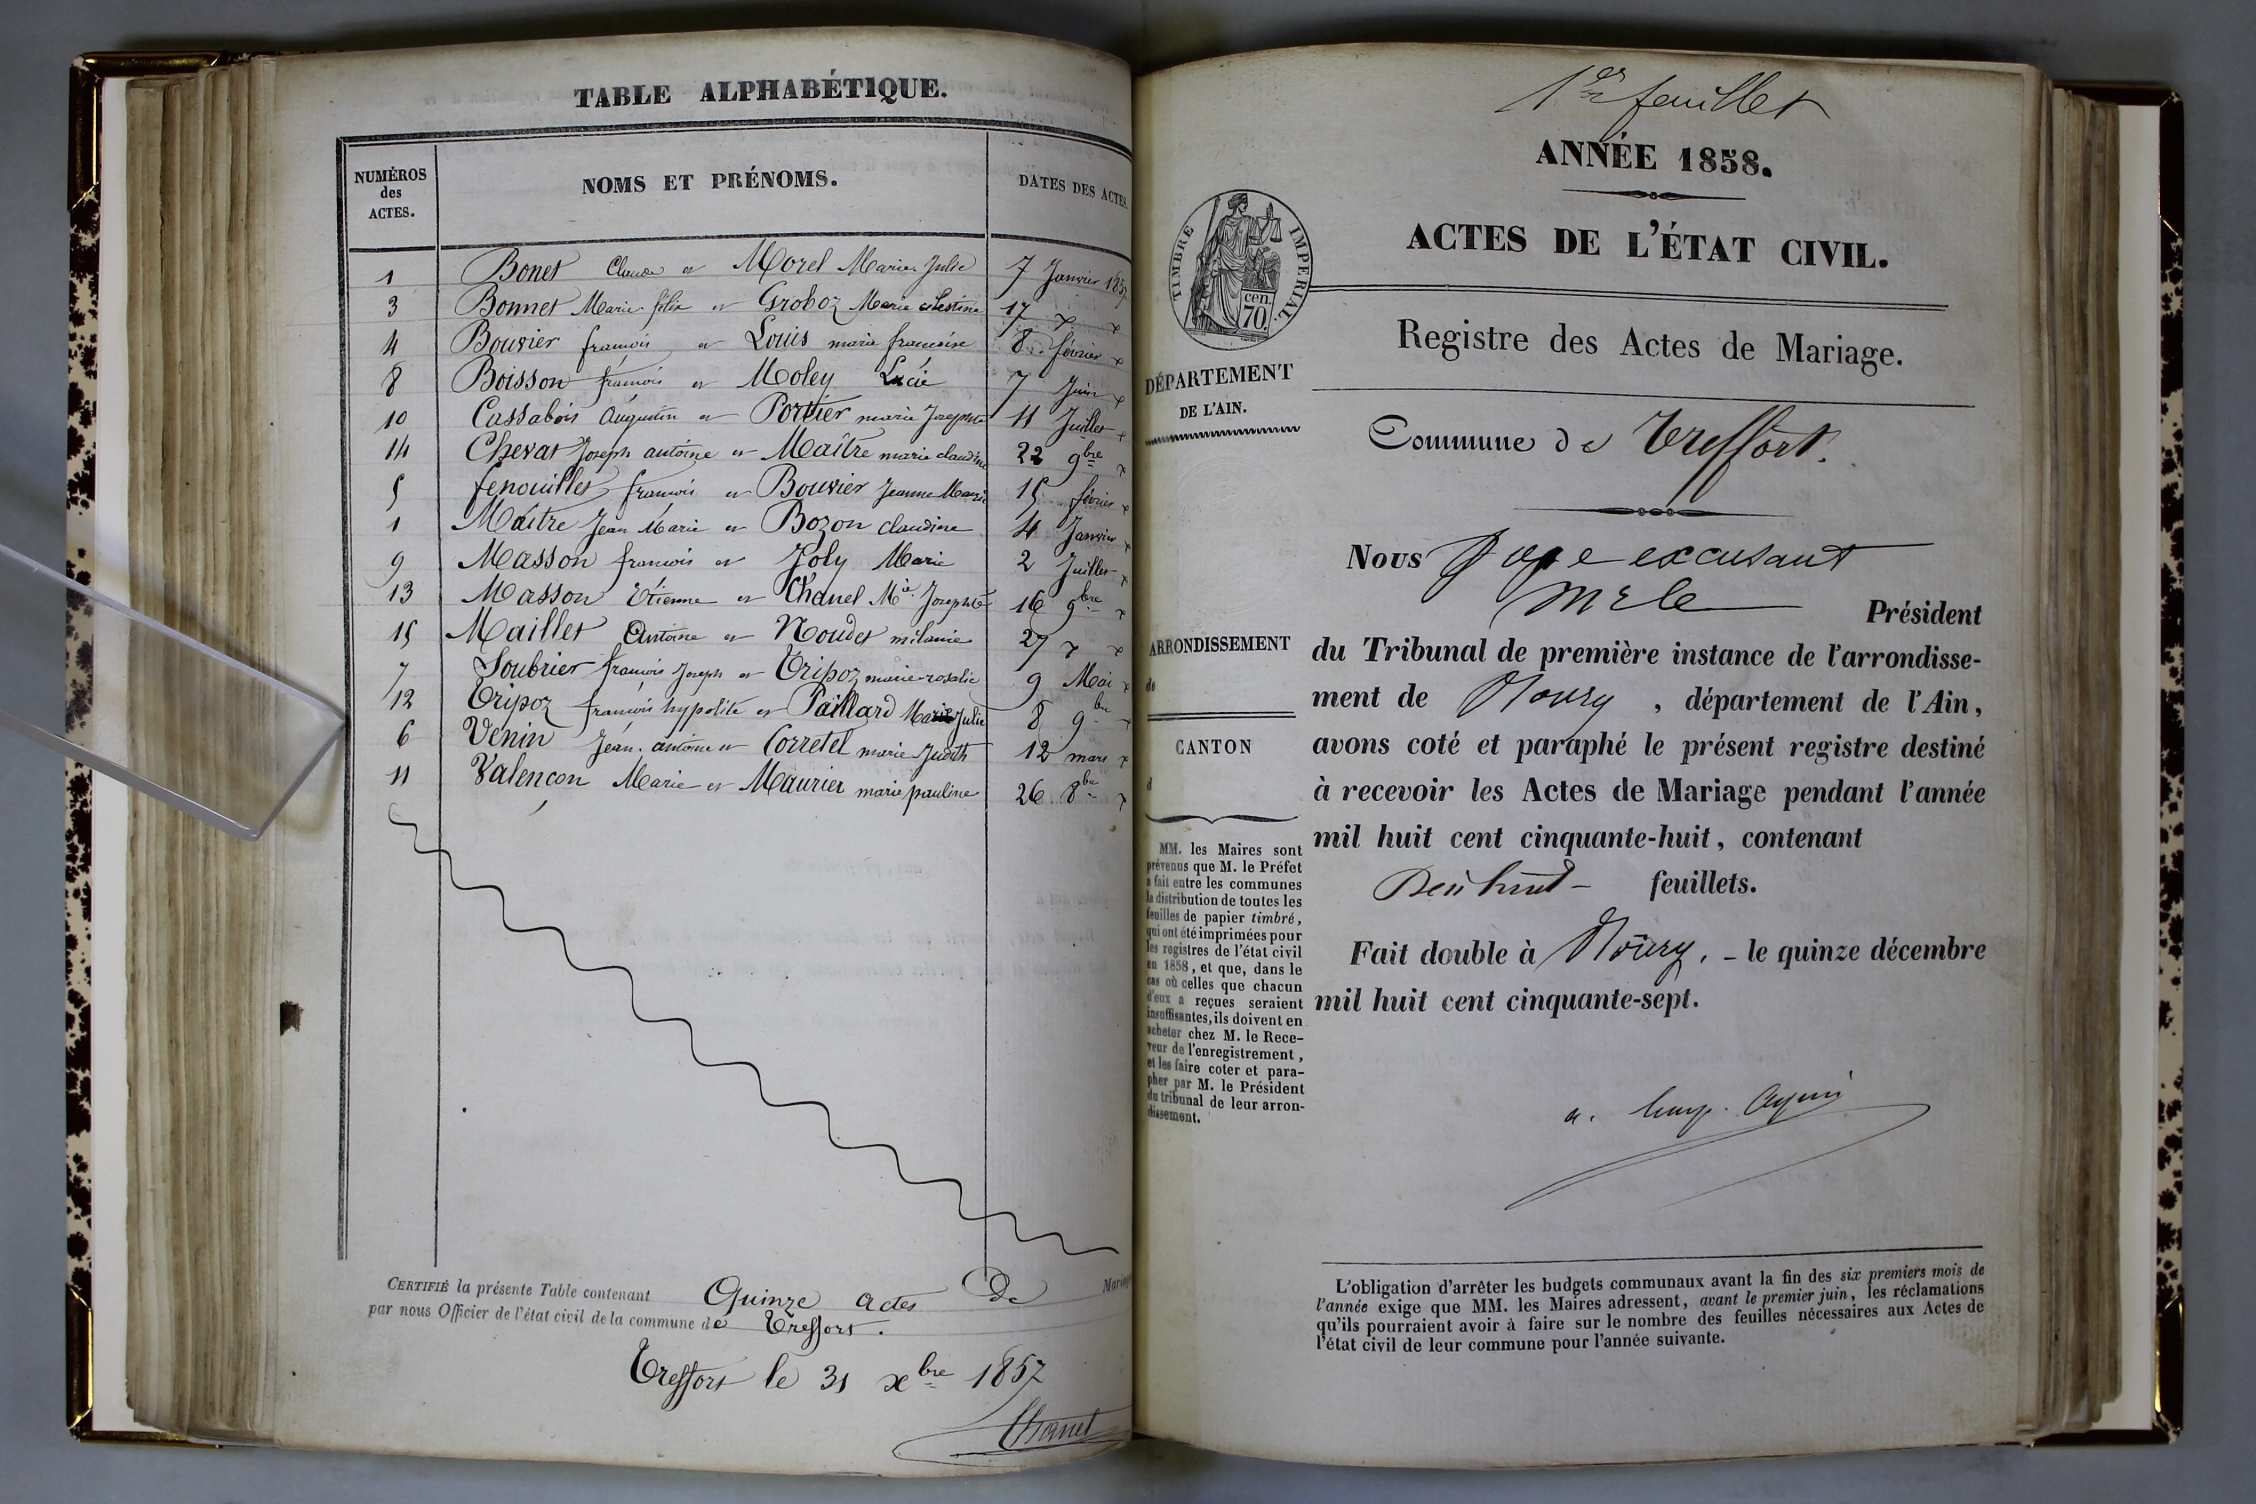 TABLE ALPHABÉTIQUE.
NUMÉROS des ACTES. NOMS ET PRÉNOMS. DATES DES ACTES.
1 Bonet Claude et Morel Marie Julie 7 Janvier 1857
3 Bonnet Marie félix et Groboz Marie célestine 17 " "
4 Bouvier françois et Louis marie françoise 8 février "
8 Boisson françois et Moley Lucie 7 Juin "
10 Cassabois Augustin et Portier marie Josephte 11 Juillet "
14 Chevat Joseph antoine et Maître marie claudine 22 9bre "
5 fenouillet françois et Bouvier Jeanne Marie 15 février "
1 Maître Jean Marie et Bozon claudine 4 Janvier "
9 Masson françois et Joly Marie 2 Juillet "
13 Masson Etienne et Chanel Mie Josephte 16 9bre "
15 Maillet Antoine et Noudet mélanie 27 " "
7 Soubrier françois Joseph et Tripoz marie rosalie 9 Mai "
12 Tripoz françois hypolite et Paillard Marie Julie 8 9bre "
6 Venin Jean antoine et Corretel marie Judith 12 mars "
11 Valençon Marie et Maurier marie pauline 26 8bre "
CERTIFIÉ la présente Table contenant Quinze actes de Mariage
par nous Officier de l'état civil de la commune de Treffort.
Treffort le 31 xbre 1857
Chanel
1er feuillet
ANNÉE 1858.
ACTES DE L'ÉTAT CIVIL.
TIMBRE IMPERIAL.
cen.
70.
Registre des Actes de Mariage.
DÉPARTEMENT
DE L'AIN.
Commune de Treffort.
ARRONDISSEMENT
de
CANTON
d
MM. les Maires sont
prévenus que M. le Préfet
a fait entre les communes
la distribution de toutes les
feuilles de papier timbré,
qui ont été imprimées pour
les registres de l'état civil
en 1858, et que, dans le
cas où celles que chacun
d'eux a reçues seraient
insuffisantes, ils doivent en
acheter chez M. le Rece-
veur de l'enregistrement,
et les faire coter et para-
pher par M. le Président
du tribunal de leur arron-
dissement.
Nous Juge excusant
Mr le Président
du Tribunal de première instance de l'arrondisse-
ment de Bourg, département de l'Ain,
avons coté et paraphé le présent registre destiné
à recevoir les Actes de Mariage pendant l'année
mil huit cent cinquante-huit, contenant
feuillets.
Fait double à Bourg, le quinze décembre
mil huit cent cinquante-sept.
L'obligation d'arrêter les budgets communaux avant la fin des six premiers mois de
l'année exige que MM. les Maires adressent, avant le premier juin, les réclamations
qu'ils pourraient avoir à faire sur le nombre des feuilles nécessaires aux Actes de
l'état civil de leur commune pour l'année suivante.